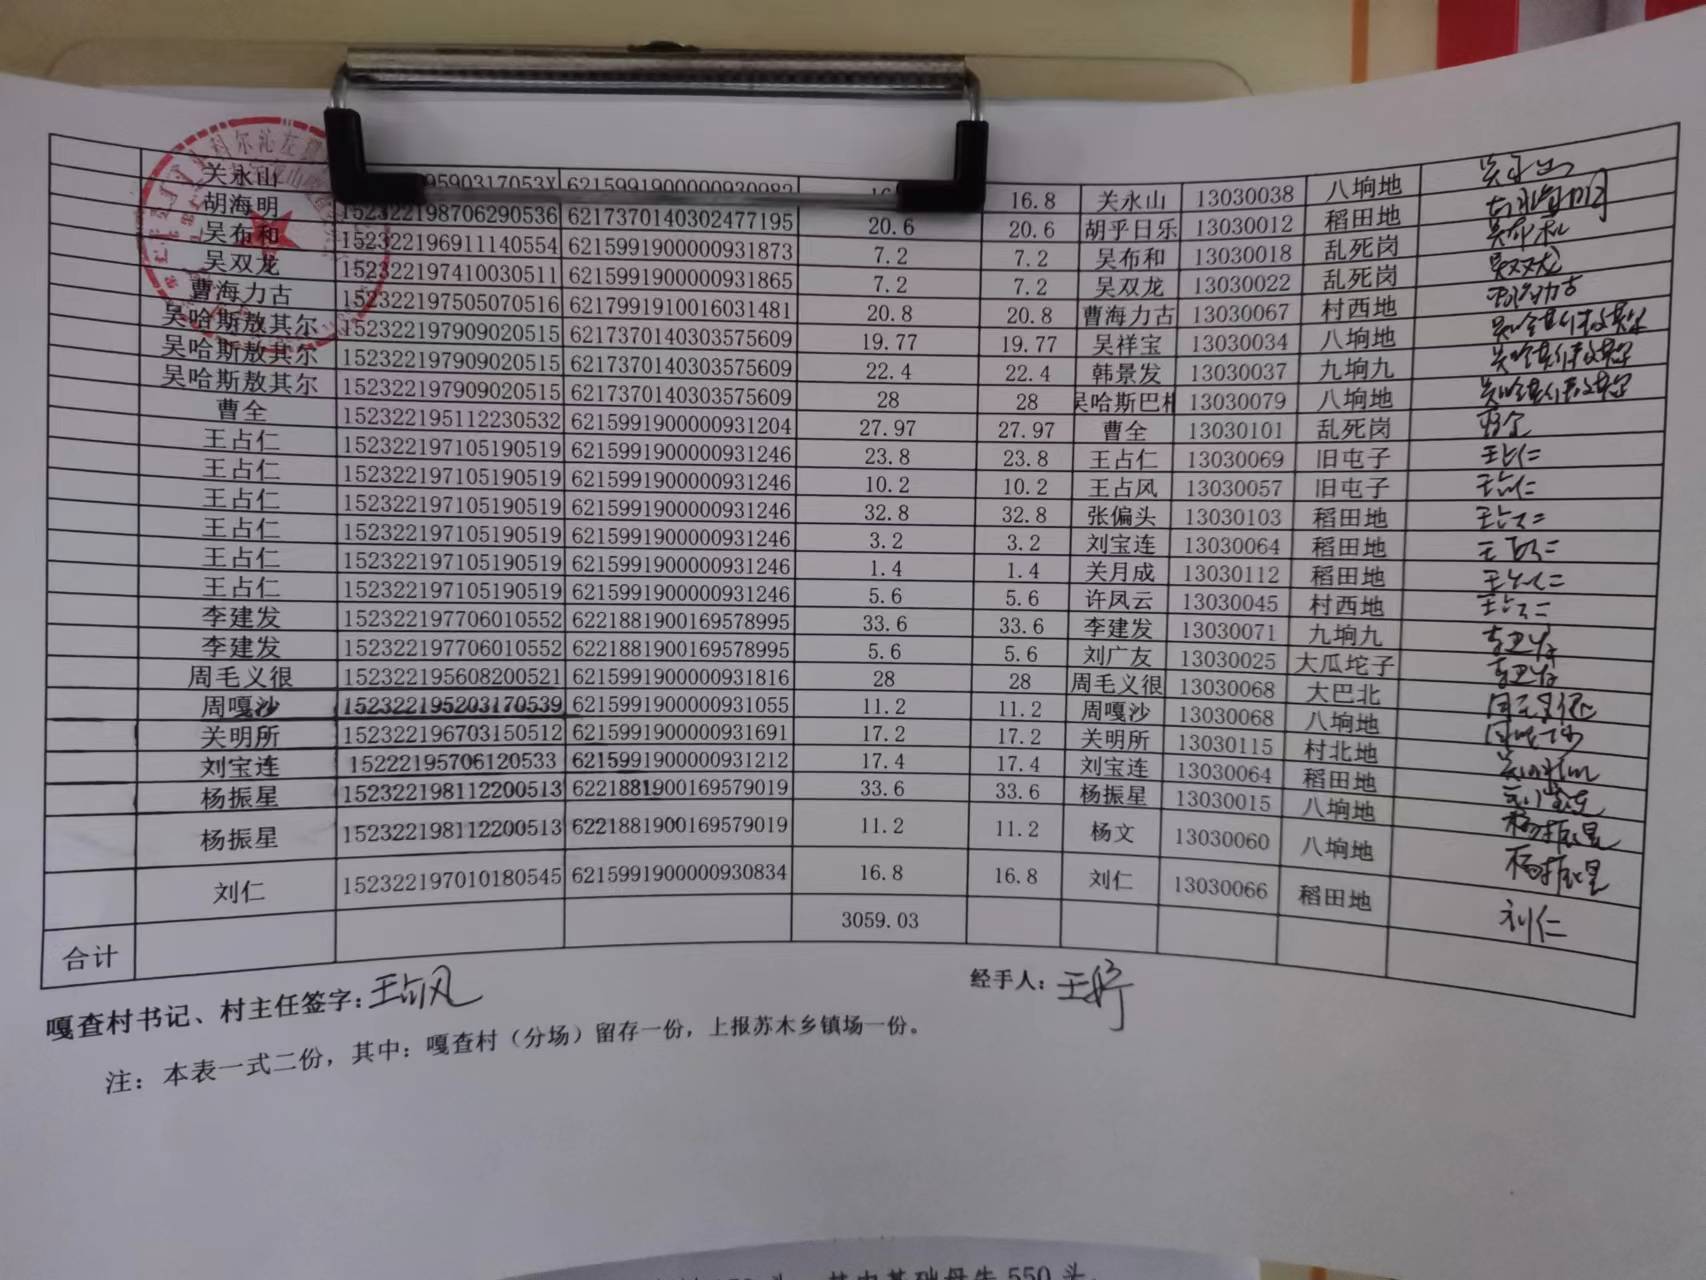 关永山 9590317053X 6215991900000930982 16.8 关永山 13030038 八垧地 关永山
胡海明 152322198706290536 6217370140302477195 20.6 20.6 胡乎日乐 13030012 稻田地 胡海明
吴布和 152322196911140554 6215991900000931873 7.2 7.2 吴布和 13030018 乱死岗 吴布和
吴双龙 152322197410030511 6215991900000931865 7.2 7.2 吴双龙 13030022 乱死岗 吴双龙
曹海力古 152322197505070516 6217991910016031481 20.8 20.8 曹海力古 13030067 村西地 曹海力古
吴哈斯敖其尔 152322197909020515 6217370140303575609 19.77 19.77 吴祥宝 13030034 八垧地 吴哈斯敖其尔
吴哈斯敖其尔 152322197909020515 6217370140303575609 22.4 22.4 韩景发 13030037 九垧九 吴哈斯敖其尔
吴哈斯敖其尔 152322197909020515 6217370140303575609 28 28 吴哈斯巴 13030079 八垧地 吴哈斯敖其尔
曹全 152322195112230532 6215991900000931204 27.97 27.97 曹全 13030101 乱死岗 曹全
王占仁 152322197105190519 6215991900000931246 23.8 23.8 王占仁 13030069 旧屯子 王占仁
王占仁 152322197105190519 6215991900000931246 10.2 10.2 王占风 13030057 旧屯子 王占仁
王占仁 152322197105190519 6215991900000931246 32.8 32.8 张偏头 13030103 稻田地 王占仁
王占仁 152322197105190519 6215991900000931246 3.2 3.2 刘宝连 13030064 稻田地 王占仁
王占仁 152322197105190519 6215991900000931246 1.4 1.4 关月成 13030112 稻田地 王占仁
王占仁 152322197105190519 6215991900000931246 5.6 5.6 许凤云 13030045 村西地 王占仁
李建发 152322197706010552 6221881900169578995 33.6 33.6 李建发 13030071 九垧九 李建发
李建发 152322197706010552 6221881900169578995 5.6 5.6 刘广友 13030025 大瓜坨子 李建发
周毛义很 152322195608200521 6215991900000931816 28 28 周毛义很 13030068 大巴北 周毛义很
周嘎沙 152322195203170539 6215991900000931055 11.2 11.2 周嘎沙 13030068 八垧地 周嘎沙
关明所 152322196703150512 6215991900000931691 17.2 17.2 关明所 13030115 村北地 关明所
刘宝连 15222195706120533 6215991900000931212 17.4 17.4 刘宝连 13030064 稻田地 刘宝连
杨振星 152322198112200513 6221881900169579019 33.6 33.6 杨振星 13030015 八垧地 杨振星
杨振星 152322198112200513 6221881900169579019 11.2 11.2 杨文 13030060 八垧地 杨振星
刘仁 152322197010180545 6215991900000930834 16.8 16.8 刘仁 13030066 稻田地 刘仁
合计 3059.03
嘎查村书记、村主任签字：王占风 经手人：王婷
注：本表一式二份，其中：嘎查村（分场）留存一份，上报苏木乡镇场一份。
其中基础母牛550头